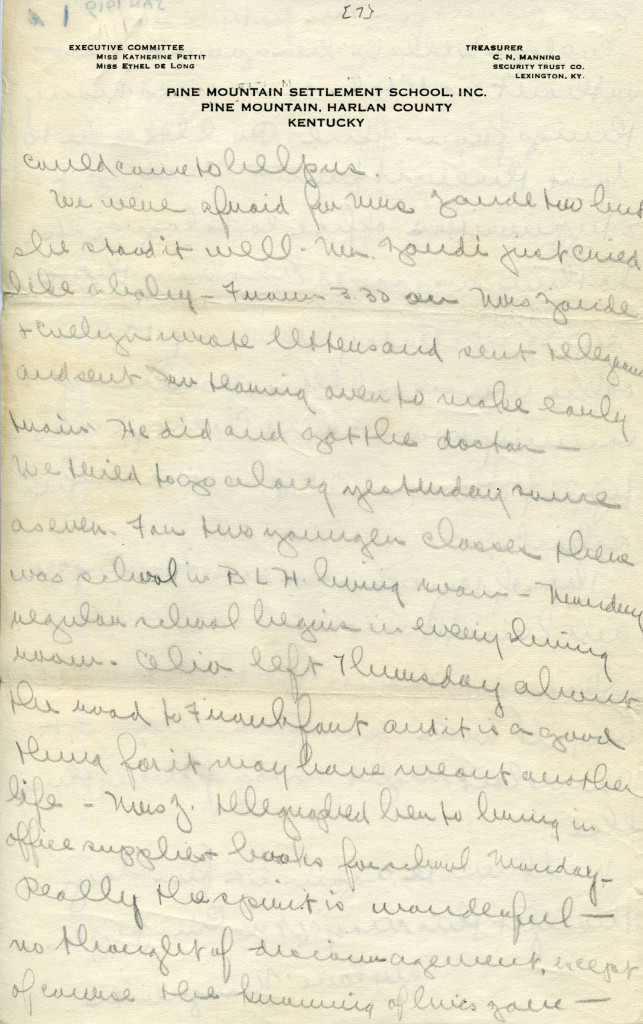 [7]
EXECUTIVE COMMITTEE
MISS KATHERINE PETTIT
MISS ETHEL DE LONG
TREASURER
C. N. MANNING
SECURITY TRUST CO.
LEXINGTON, KY.
PINE MOUNTAIN SETTLEMENT SCHOOL, INC.
PINE MOUNTAIN, HARLAN COUNTY
KENTUCKY
could come to help us.
We were afraid for Mrs Zande too but
she stood it well. Mr. Zande just cried
like a baby – From 3.30 on Mrs Zande
+ Evelyn wrote letters and sent telegrams
and sent over to make early
train. He did and got the doctor –
We tried to go along yesterday same
as ever. For two younger classes there
was school in B L H living room – Monday
regular school begins in every living
room. Celia left Thursday about
the road to Frankfort and it is a good
thing for it may have meant another
life – Mrs Z. telegraphed her to bring in
office supplies + books for school Monday –
Really the spirit is wonderful –
no thought of discouragement, except
of course the burning of Miss –